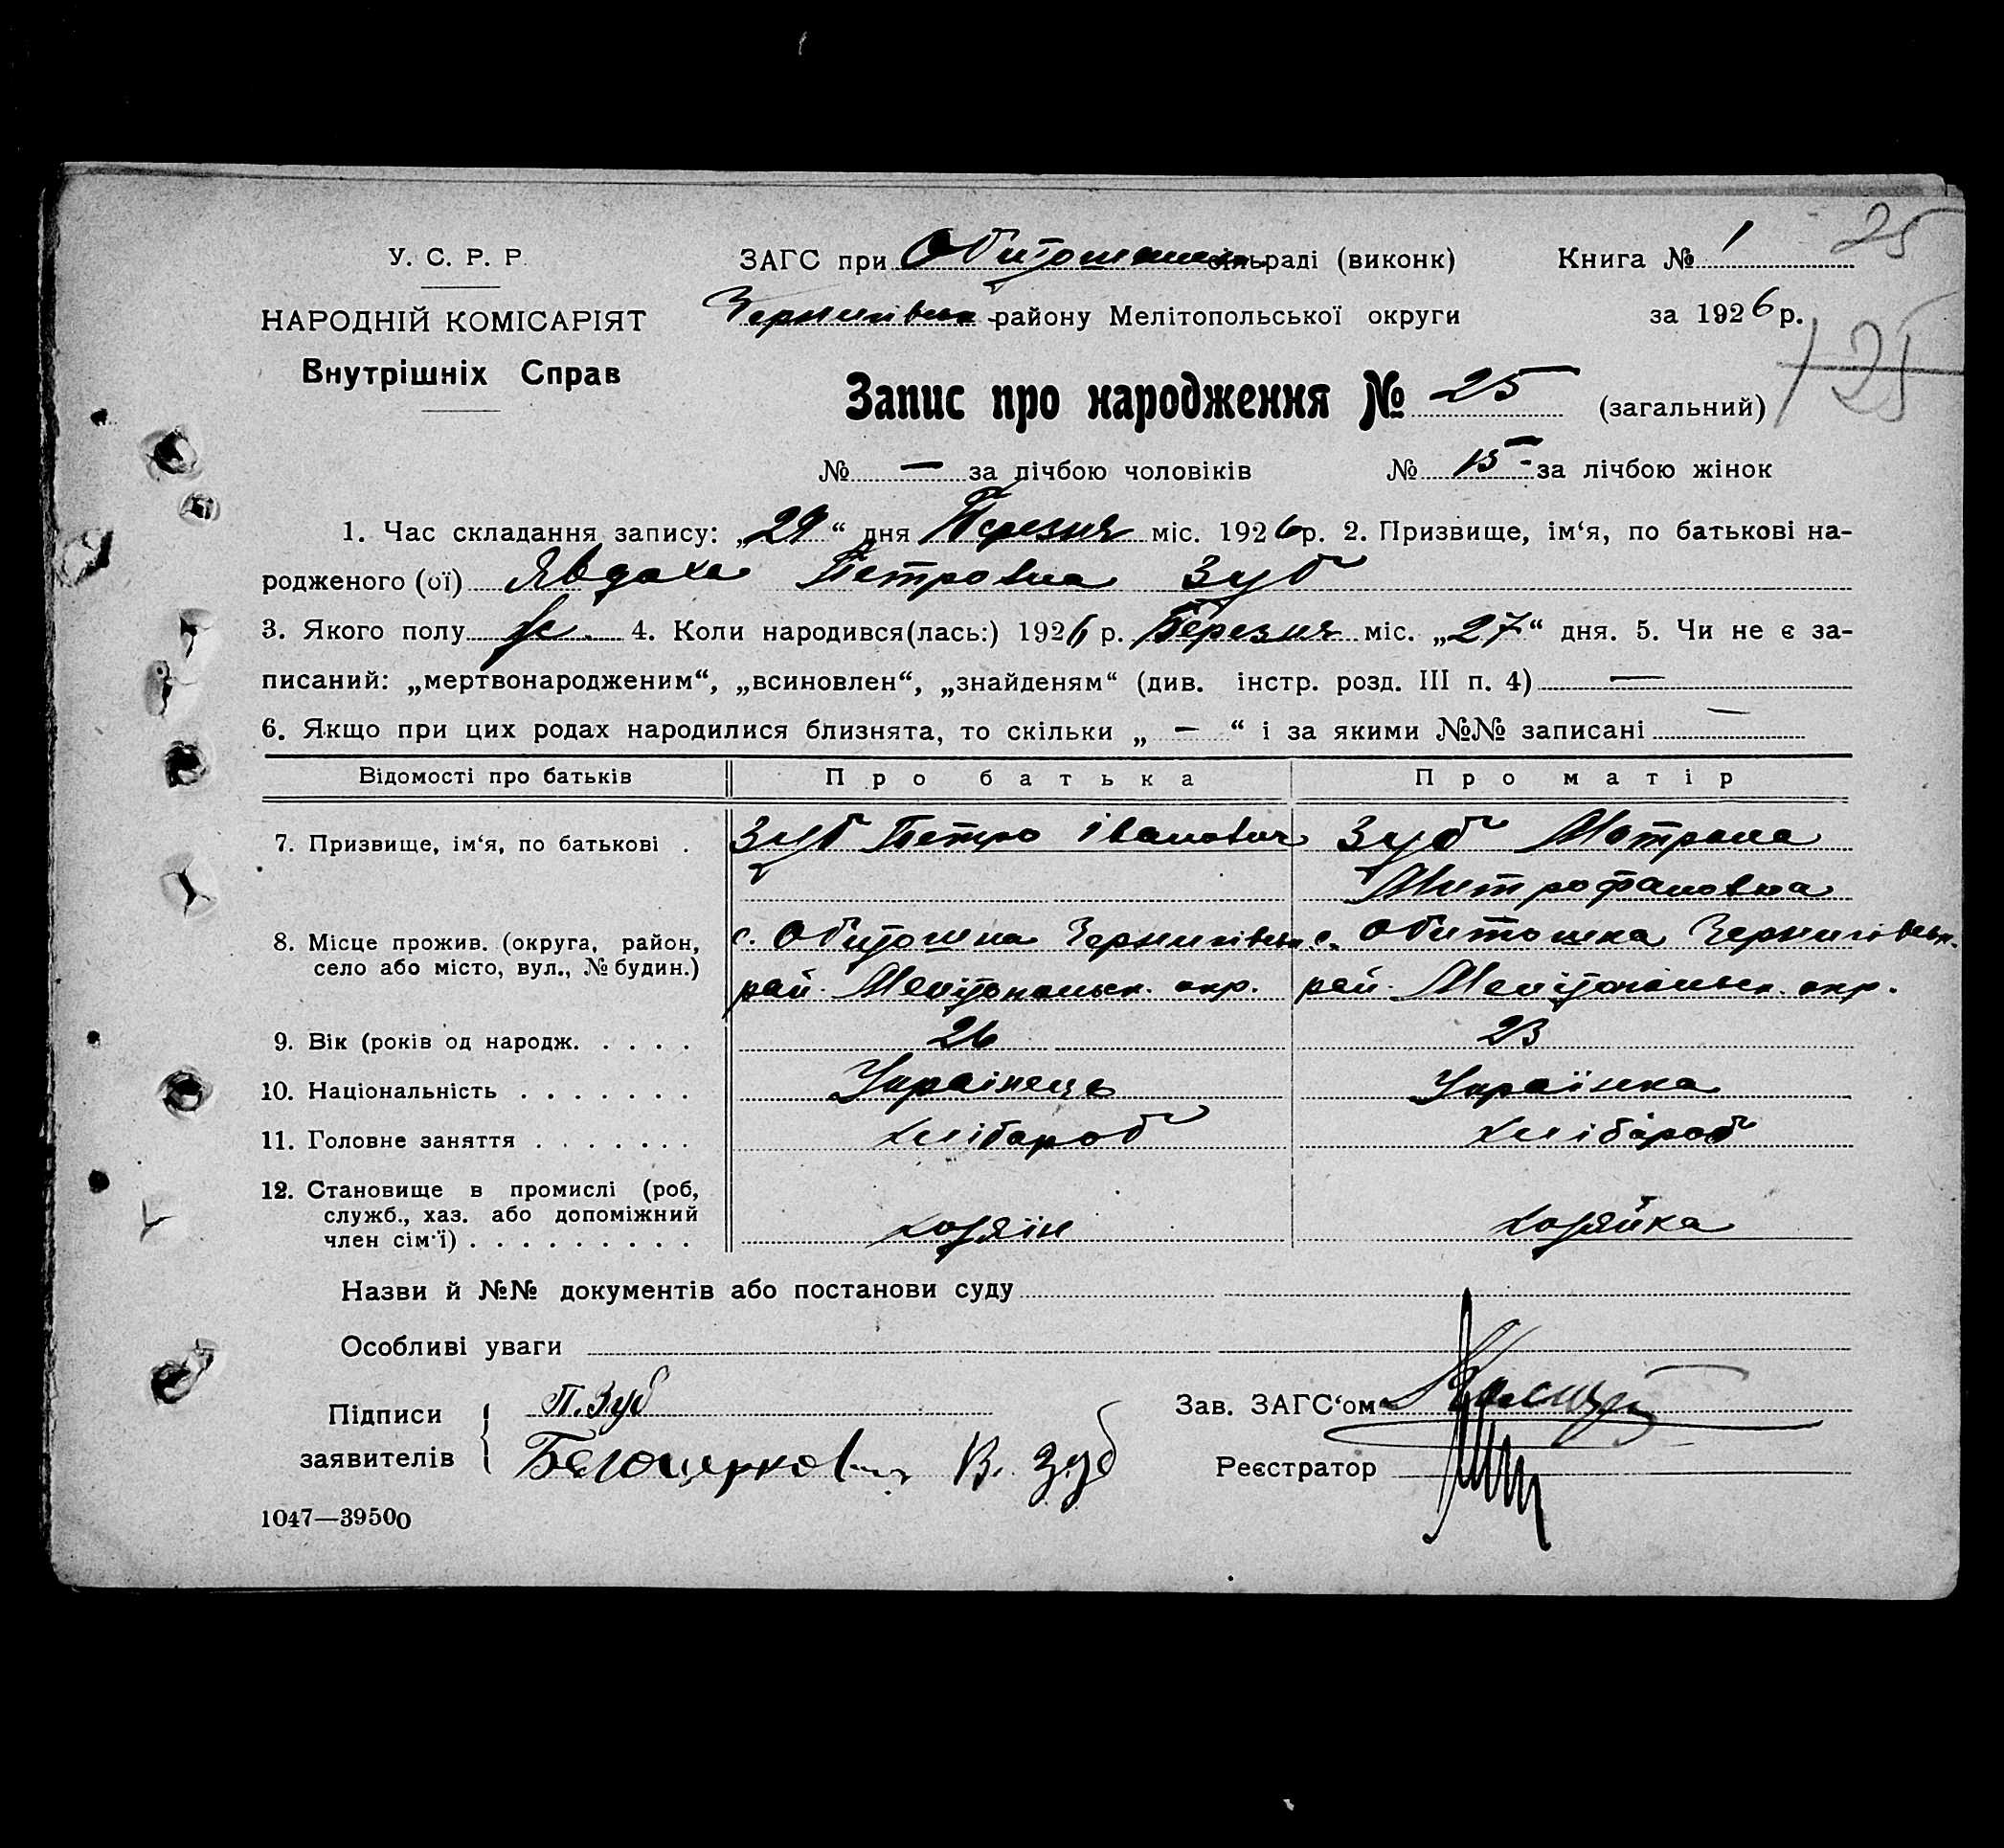 25
У. С. Р. Р.
ЗАГС при Обиточанськ. сільраді (виконк) Книга № 1
НАРОДНІЙ КОМІСАРІЯТ
Чернигівськ району Мелітопольської округи за 1926 р.
Внутрішніх Справ
25
Запис про народження № 25 (загальний)
№ — за лічбою чоловіків № 15 за лічбою жінок
1. Час складання запису: „29“ дня Березня міс. 1926 р. 2. Призвище, ім‘я, по батькові на-
родженого (ої) Явдоха Петровна Зуб
3. Якого полу ж. 4. Коли народився(лась:) 1926 р. Березня міс. „27“ дня. 5. Чи не є за-
писаний: „мертвонародженим“, „всиновлен“, „знайденям“ (див. інстр. розд. III п. 4) —
6. Якщо при цих родах народилися близнята, то скільки „ — “ і за якими №№ записані —
Відомості про батьків Про батька Про матір
7. Призвище, ім‘я, по батькові . Зуб Петро Іванович Зуб Мотрона
Митрофановна
8. Місце прожив. (округа, район, с. Обиточна Чернигівськ с. Обиточна Чернигівськ.
село або місто, вул., № будин.) рай. Мелітопольск. окр. рай. Мелітопольск. окр.
9. Вік (років од народж. . . . . 26 23
10. Національність . . . . . . . Українець Українка
11. Головне заняття . . . . . . . хлібароб хлібароб
12. Становище в промислі (роб,
служб., хаз. або допоміжний
член сім‘ї) . . . . . . . . . хозяін хозяйка
Назви й №№ документів або постанови суду
Особливі уваги
Підписи П. Зуб Зав. ЗАГС‘ом
заявителів В. Зуб Реєстратор
1047—39500